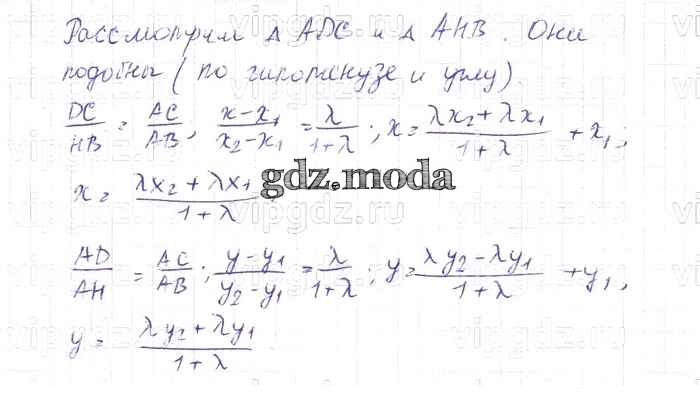 Рассмотрим Δ ADC и Δ AHB. Они
подобны (по гипотенузе и углу).
DC/HB = AC/AB, (x-x₁)/(x₂-x₁) = λ/(1+λ); x = (λx₂+λx₁)/(1+λ) + x₁;
x = (λx₂+λx₁)/(1+λ)
gdz.moda
AD/AH = AC/AB; (y-y₁)/(y₂-y₁) = λ/(1+λ); y = (λy₂-λy₁)/(1+λ) + y₁,
y = (λy₂+λy₁)/(1+λ)